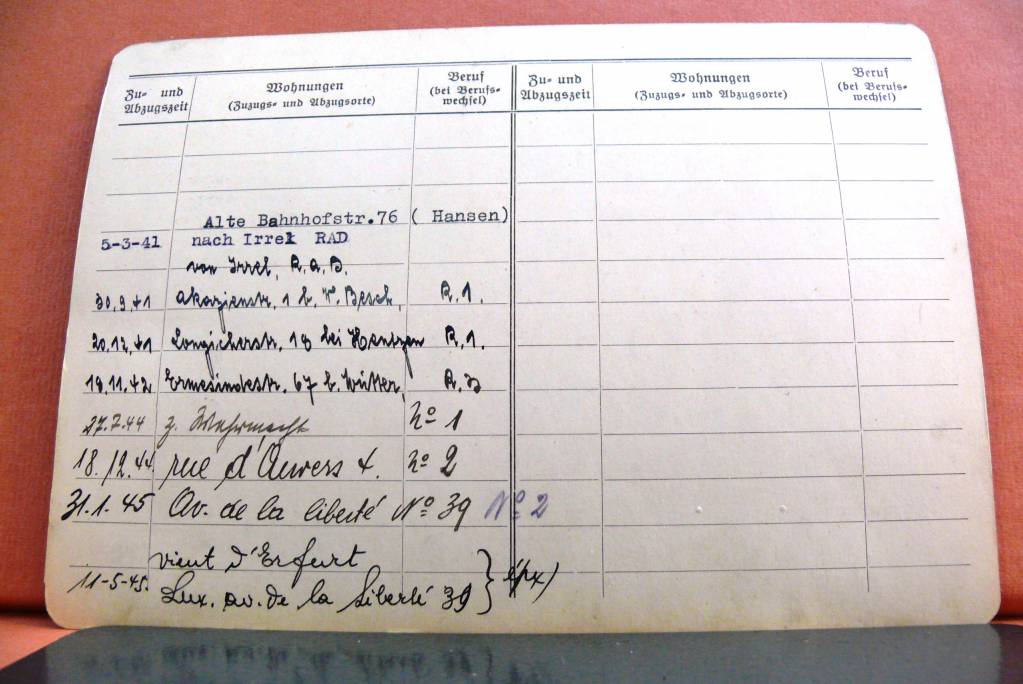 Zu- und Abzugszeit
Wohnungen
(Zuzugs- und Abzugsorte)
Beruf
(bei Berufs-
wechsel)
Zu- und Abzugszeit
Wohnungen
(Zuzugs- und Abzugsorte)
Beruf
(bei Berufs-
wechsel)
Alte Bahnhofstr.76 ( Hansen)
5-3-41 nach Irrel RAD
von Irrel, R.a.D.
30.9.41 Akazienstr. 1 b. W. R.1.
20.12.41 Longicherstr. 18 bei Hentzen R.1.
19.11.42 Ermesindestr. 67 b. R.3
27.7.44 z. Wehrmacht No 1
18.12.44 rue d'Anvers 4. No 2
31.1.45 Av. de la liberté No 39 No 2
vient d'Erfurt
11-5-45. Lux. av. de la Liberté 39